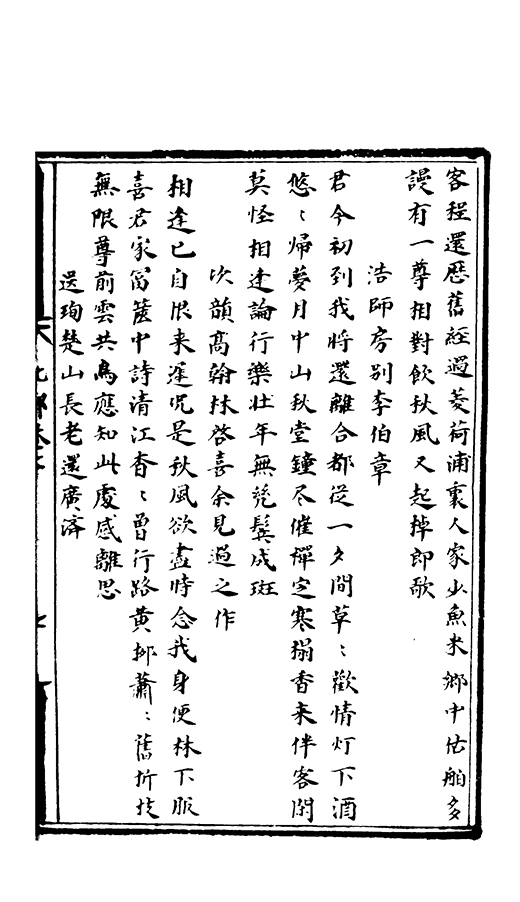 客程還歷舊經過菱荷浦裏人家少魚米鄉中估舶多
謾有一尊相對飲秋風又起棹郎歌
浩師房別李伯章
君今初到我將還離合都從一夕間草〻歡情灯下酒
悠〻歸夢月中山秋堂鐘尽催禪定寒榻香来伴客閒
莫怪相逢論行樂壮年無兠鬓成斑
次韻髙翰林啓喜余見過之作
相逢已自恨来遲况是秋風欲盡時念我身便林下服
喜君家富篋中詩清江杳〻曽行路黄栁蕭〻舊折枝
無限尊前雲共鳥應知此處感離思
送珣楚山長老還廣済